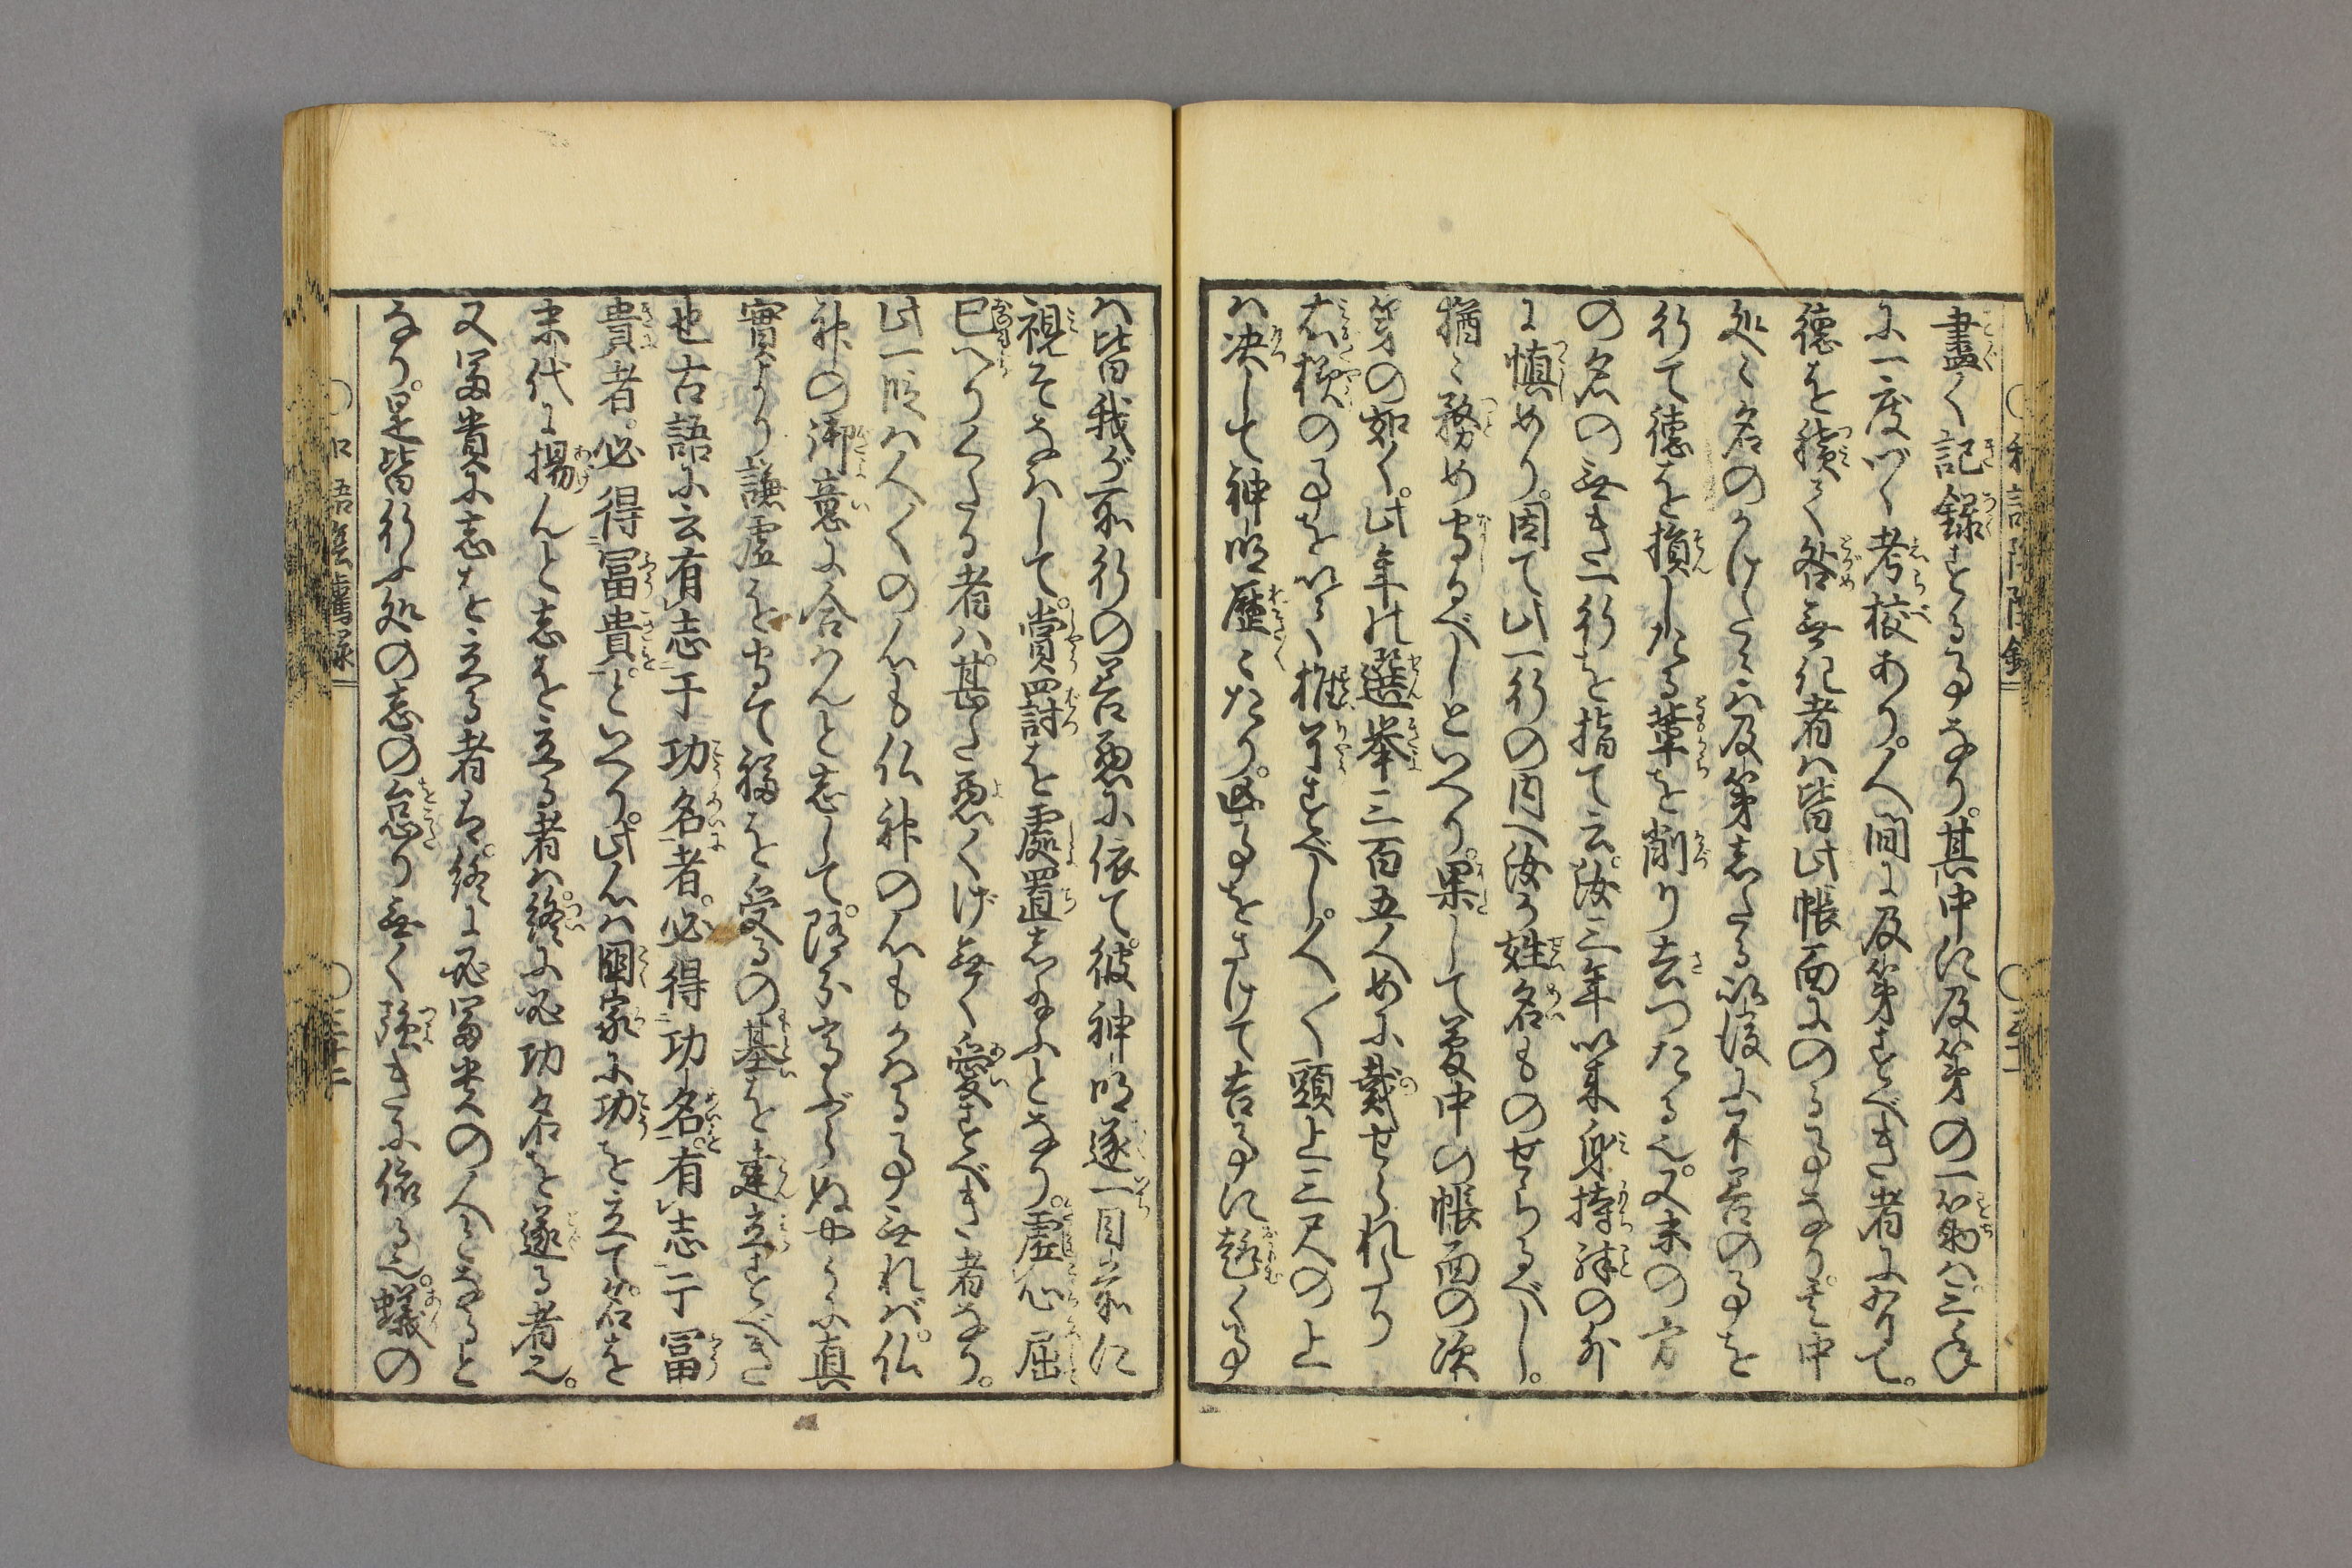 盡く記録せる事なり。其中に及第の一筋は三年
に一度づゝ考校あり。人間に及第すべき者にありて。
徳を積て咎無き者は皆此帳面にのる事なり。其中
処々名のかけたるは及第したる以後に不善の事を
行て徳を損したる輩を削り去つたる也。又末の方
の名の無き一行を指て云。汝三年以来身持殊の外
に慎めり。因て此一行の内へ汝が姓名ものせらるべし。
猶々務め守るべしといへり。果して夢中の帳面の次
第の如く。此年の選挙三百五人めに載せられたり
右様の事を以て推量すべし。人々頭上三尺の上
は決して神明歴々たり。凶事をさけて吉事に趣く事
は皆我が所行の善悪に依て。彼神明逐一目前に
視そなはして。賞罰を處置し玉ふとなり。虚心屈
己へりくだる者は。甚だ悪くげ無く愛すべき者なり。
此一段は人々の心も仏神の心もかはる事無れば。仏
神の御意に合はんと志して。随分高ぶらぬやうに真
實より謙虚を守て福を受るの基を建立すべき
也古語に云有志于功名者。必得功名。有志于冨
貴者。必得冨貴。といへり。此心は国家に功を立て。名を
末代に揚んと志を立る者は。終に必功名を遂る者也。
又冨貴に志を立る者は。終に必冨貴の人となると
なり。是皆行ふ処の志の怠り無く強きに依る也。蟻の